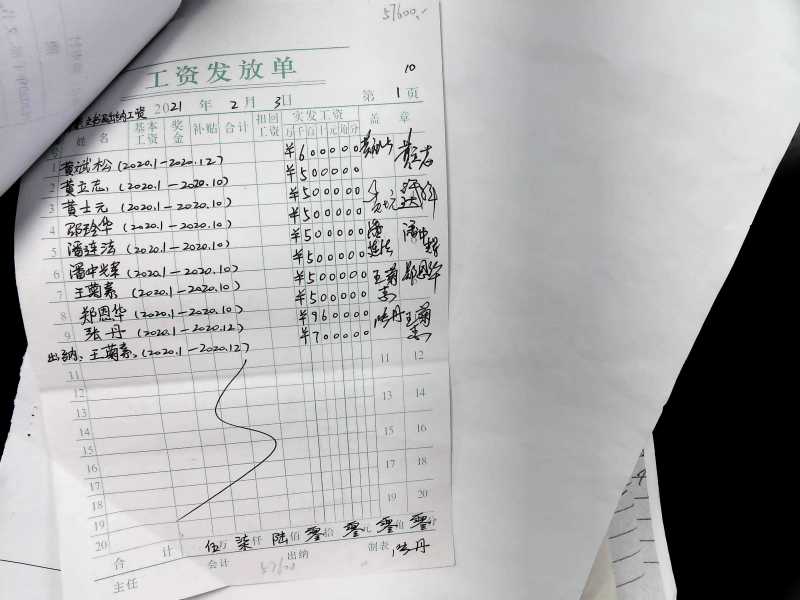 57600.-
工资发放单
10
2021 年 2 月 3 日 第 1 页
文书出纳工资
姓名 基本工资 奖金 补贴 合计 扣回工资 实发工资 盖章
万 千 百 十 元 角 分
1 黄斌松 (2020.1-2020.12) ¥600000
2 黄立志 (2020.1-2020.10) ¥500000 黄立志
3 黄士元 (2020.1-2020.10) ¥500000
4 邵玲华 (2020.1-2020.10) ¥500000
5 潘连法 (2020.1-2020.10) ¥500000 潘连法
6 潘中荣 (2020.1-2020.10) ¥500000
7 王菊素 (2020.1-2020.10) ¥500000 王菊素
8 郑恩华 (2020.1-2020.10) ¥500000 郑恩华
9 张丹 (2020.1-2020.12) ¥960000 张丹
出纳: 王菊素 (2020.1-2020.12) ¥700000 王菊素
11 11 12
12
13 13 14
14
15 15 16
16
17 17 18
18
19 19 20
20
合计 伍万 柒仟 陆佰 零拾 零元 零角 零分
主任 会计 57600 出纳 制表 张丹